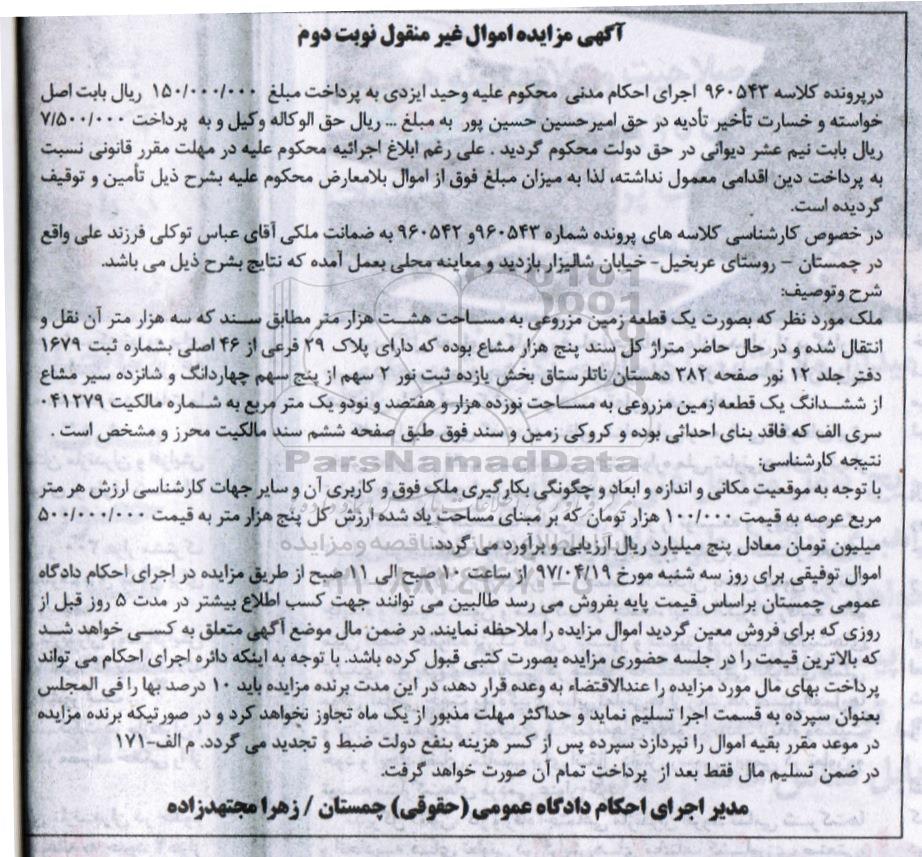 آگهی مزایده اموال غیر منقول نوبت دوم
درپرونده کلاسه ۹۶۰۵۴۳ اجرای احکام مدنی محکوم علیه وحید ایزدی به پرداخت مبلغ ۱۵۰/۰۰۰/۰۰۰ ریال بابت اصل
خواسته و خسارت تأخیر تأدیه در حق امیرحسین حسین پور به مبلغ ... ریال حق الوکاله وکیل و به پرداخت ۷/۵۰۰/۰۰۰
ریال بابت نیم عشر دیوانی در حق دولت محکوم گردید . علی رغم ابلاغ اجرائیه محکوم علیه در مهلت مقرر قانونی نسبت
به پرداخت دین اقدامی معمول نداشته، لذا به میزان مبلغ فوق از اموال بلامعارض محکوم علیه بشرح ذیل تأمین و توقیف
گردیده است.
در خصوص کارشناسی کلاسه های پرونده شماره ۹۶۰۵۴۳و ۹۶۰۵۴۲ به ضمانت ملکی آقای عباس توکلی فرزند علی واقع
در چمستان – روستای عربخیل- خیابان شالیزار بازدید و معاینه محلی بعمل آمده که نتایج بشرح ذیل می باشد.
شرح وتوصیف:
ملک مورد نظر که بصورت یک قطعه زمین مزروعی به مساحت هشت هزار متر مطابق سند که سه هزار متر آن نقل و
انتقال شده و در حال حاضر متراژ کل سند پنج هزار مشاع بوده که دارای پلاک ۲۹ فرعی از ۴۶ اصلی بشماره ثبت ۱۶۷۹
دفتر جلد ۱۲ نور صفحه ۳۸۲ دهستان ناتلرستاق بخش یازده ثبت نور ۲ سهم از پنج سهم چهاردانگ و شانزده سیر مشاع
از ششدانگ یک قطعه زمین مزروعی به مساحت نوزده هزار و هفتصد و نودو یک متر مربع به شماره مالکیت ۰۴۱۲۷۹
سری الف که فاقد بنای احداثی بوده و کروکی زمین و سند فوق طبق صفحه ششم سند مالکیت محرز و مشخص است .
نتیجه کارشناسی:
با توجه به موقعیت مکانی و اندازه و ابعاد و چگونگی بکارگیری ملک فوق و کاربری آن و سایر جهات کارشناسی ارزش هر متر
مربع عرصه به قیمت ۱۰۰/۰۰۰ هزار تومان که بر مبنای مساحت یاد شده ارزش کل پنج هزار متر به قیمت ۵۰۰/۰۰۰/۰۰۰
میلیون تومان معادل پنج میلیارد ریال ارزیابی و برآورد می گردد.
اموال توقیفی برای روز سه شنبه مورخ ۹۷/۰۴/۱۹ از ساعت ۱۰ صبح الی ۱۱ صبح از طریق مزایده در اجرای احکام دادگاه
عمومی چمستان براساس قیمت پایه بفروش می رسد طالبین می توانند جهت کسب اطلاع بیشتر در مدت ۵ روز قبل از
روزی که برای فروش معین گردید اموال مزایده را ملاحظه نمایند. در ضمن مال موضع آگهی متعلق به کسی خواهد شد
که بالاترین قیمت را در جلسه حضوری مزایده بصورت کتبی قبول کرده باشد. با توجه به اینکه دائره اجرای احکام می تواند
پرداخت بهای مال مورد مزایده را عندالاقتضاء به وعده قرار دهد، در این مدت برنده مزایده باید ۱۰ درصد بها را فی المجلس
بعنوان سپرده به قسمت اجرا تسلیم نماید و حداکثر مهلت مذبور از یک ماه تجاوز نخواهد کرد و در صورتیکه برنده مزایده
در موعد مقرر بقیه اموال را نپردازد سپرده پس از کسر هزینه بنفع دولت ضبط و تجدید می گردد. م الف-۱۷۱
در ضمن تسلیم مال فقط بعد از پرداخت تمام آن صورت خواهد گرفت.
مدیر اجرای احکام دادگاه عمومی (حقوقی) چمستان / زهرا مجتهدزاده
ParsNamadData